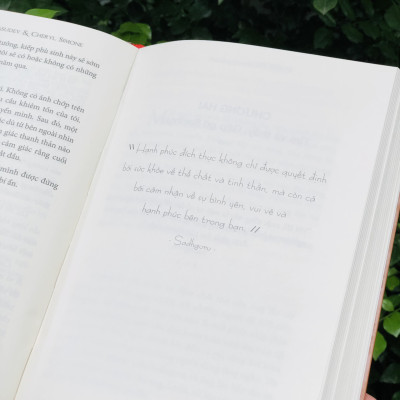 & CHERYL SIMONE
tưởng, kiếp phù sinh này sẽ sớm
tôi sẽ có hoặc không có những
năm qua.
Không có ánh chớp trên
cầu khiêm tốn của tôi,
uyến mình. Sau đó, một
c dù từ bên ngoài nhìn
giác thanh thản nào
cảm giác rằng cuối
ắt đầu.
mình được đúng
bí ẩn.
"Hạnh phúc đích thực không chỉ được quyết định
bởi sức khỏe về thể chất và tinh thần, mà còn cả
bởi cảm nhận về sự bình yên, vui vẻ và
hạnh phúc bên trong bạn."
- Sadhguru -